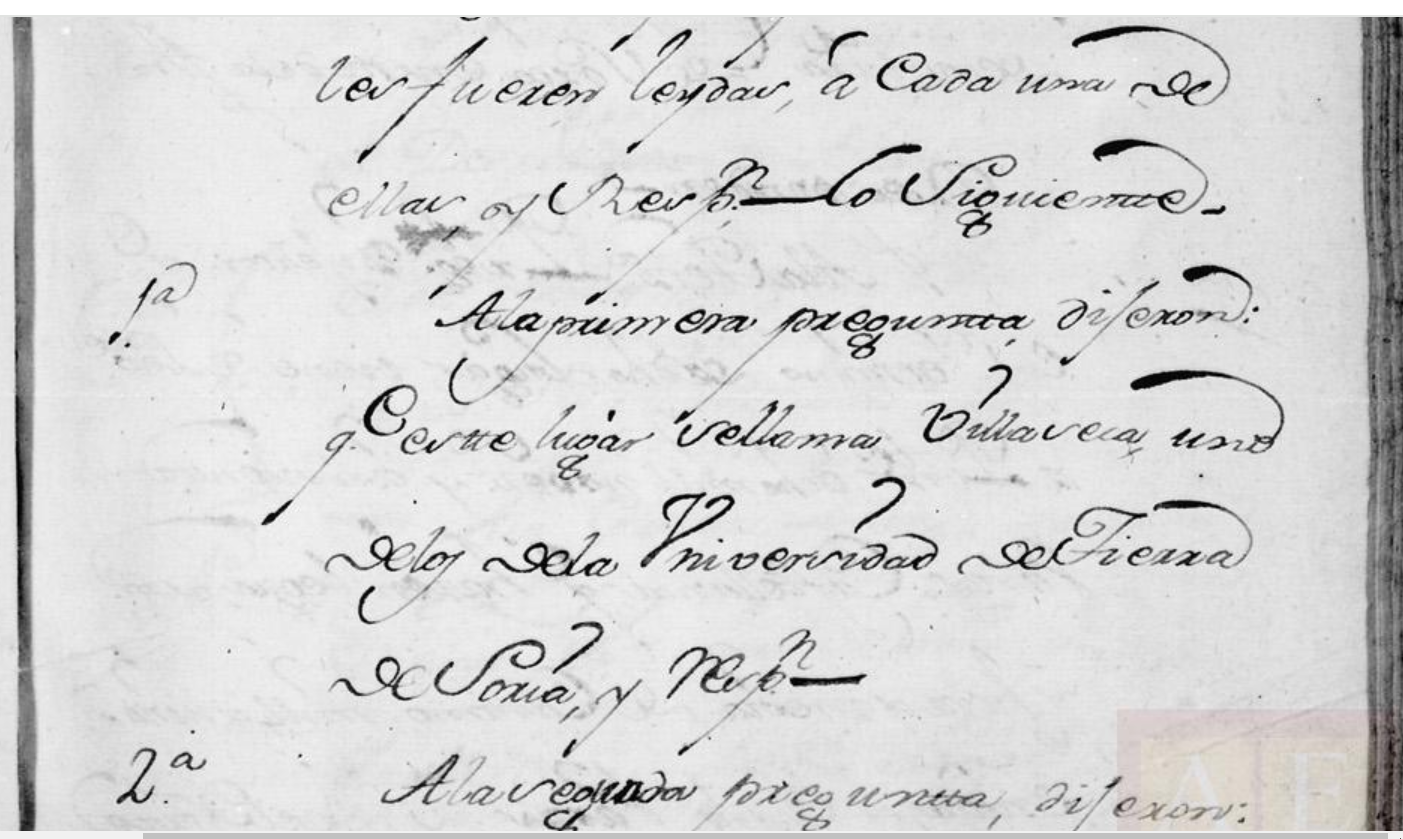 les fueren leydas, a Cada una de
ellas, y Resp.n lo Siguiente-
1a A la primera pregunta dijeron:
q.e este lugar se llama Villaseca, uno
de los de la Universidad de Tierra
de Soria, y Resp.n
2.a A la segunda pregunta, dijeron: